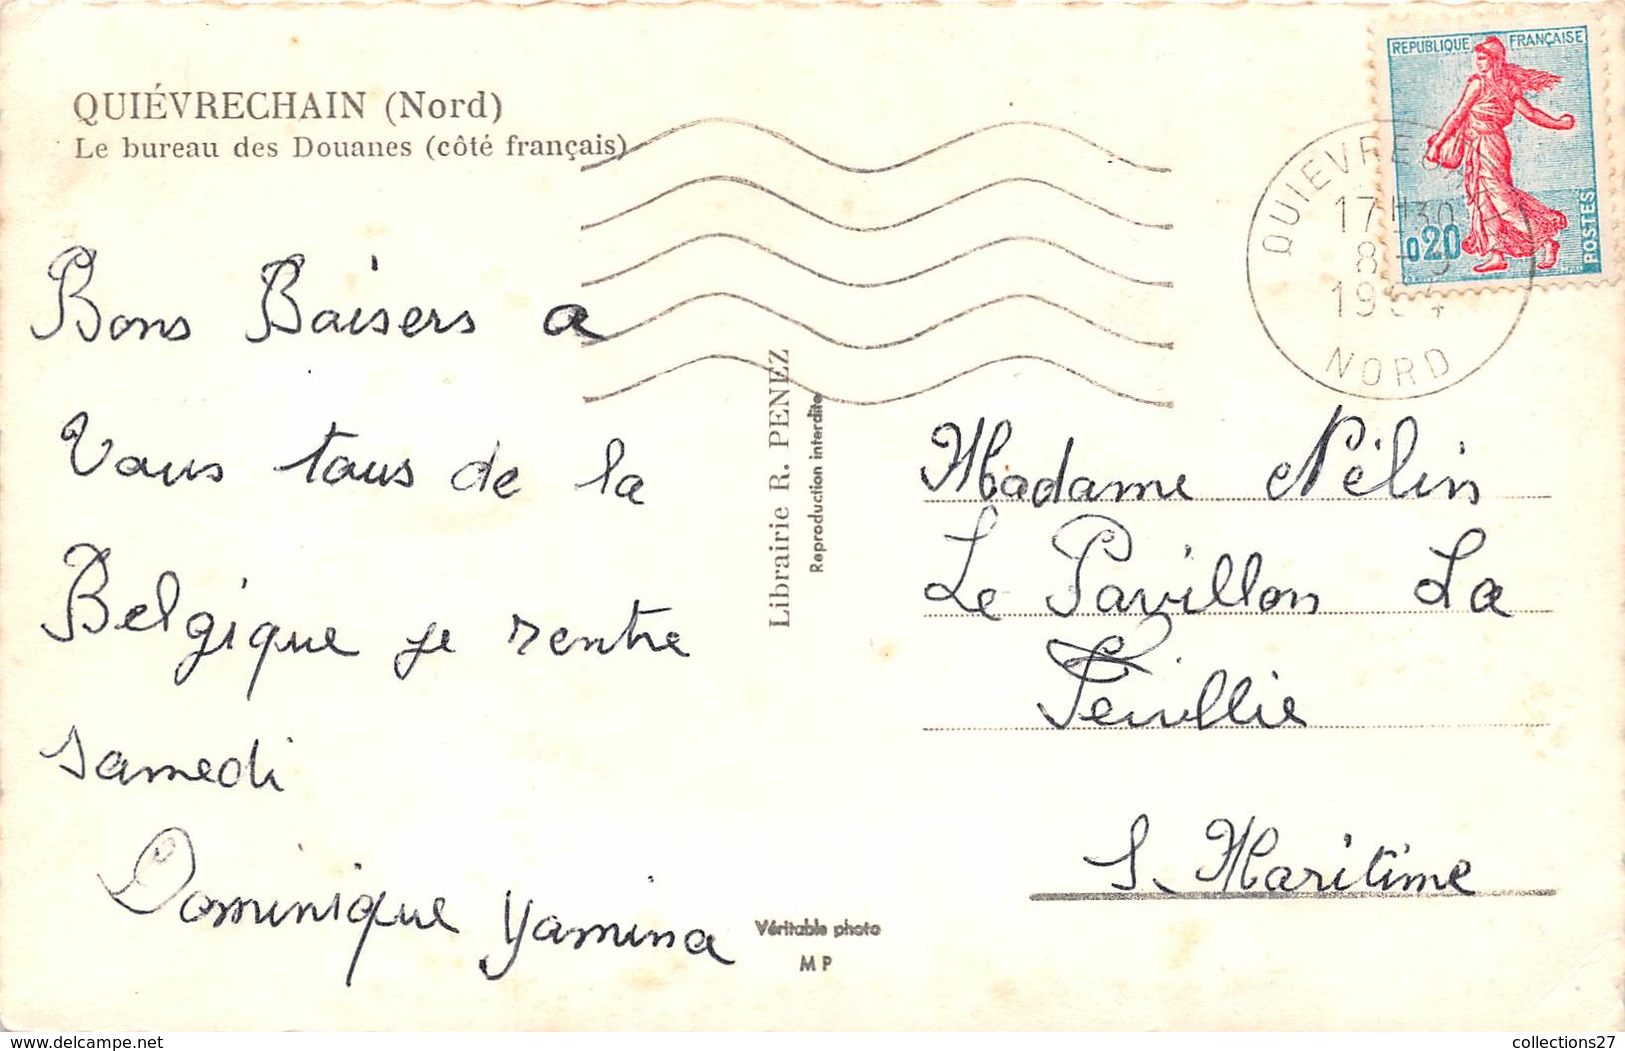 QUIÉVRECHAIN (Nord)
Le bureau des Douanes (côté français)
REPUBLIQUE FRANÇAISE
0,20
POSTES
17H30
NORD
Bons Baisers a
Vous tous de la
Belgique je rentre
samedi
Dominique Yamina
Librairie R. PENEZ
Reproduction interdite
Véritable photo
M P
Madame Nélin
Le Pavillon La
Feuillie
S. Maritime
www.delcampe.net
collections27